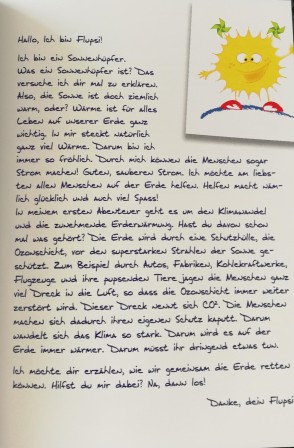 Hallo, Ich bin Flupsi!
Ich bin ein Sonnenhüpfer.
Was ein Sonnenhüpfer ist? Das
versuche ich dir mal zu erklären.
Also, die Sonne ist doch ziemlich
warm, oder? Wärme ist für alles
Leben auf unserer Erde ganz
wichtig. In mir steckt natürlich
ganz viel Wärme. Darum bin ich
immer so fröhlich. Durch mich können die Menschen sogar
Strom machen! Guten, sauberen Strom. Ich möchte am liebs-
ten allen Menschen auf der Erde helfen. Helfen macht näm-
lich glücklich und auch viel Spass!
In meinem ersten Abenteuer geht es um den Klimawandel
und die zunehmende Erderwärmung. Hast du davon schon
mal was gehört? Die Erde wird durch eine Schutzhülle, die
Ozonschicht, vor den superstarken Strahlen der Sonne ge-
schützt. Zum Beispiel durch Autos, Fabriken, Kohlekraftwerke,
Flugzeuge und ihre pupsenden Tiere jagen die Menschen ganz
viel Dreck in die Luft, so dass die Ozonschicht immer weiter
zerstört wird. Dieser Dreck nennt sich CO². Die Menschen
machen sich dadurch ihren eigenen Schutz kaputt. Darum
wandelt sich das Klima so stark. Darum wird es auf der
Erde immer wärmer. Darum müsst ihr dringend etwas tun.
Ich möchte dir erzählen, wie wir gemeinsam die Erde retten
können. Hilfst du mir dabei? Na, dann los!
Danke, dein Flupsi